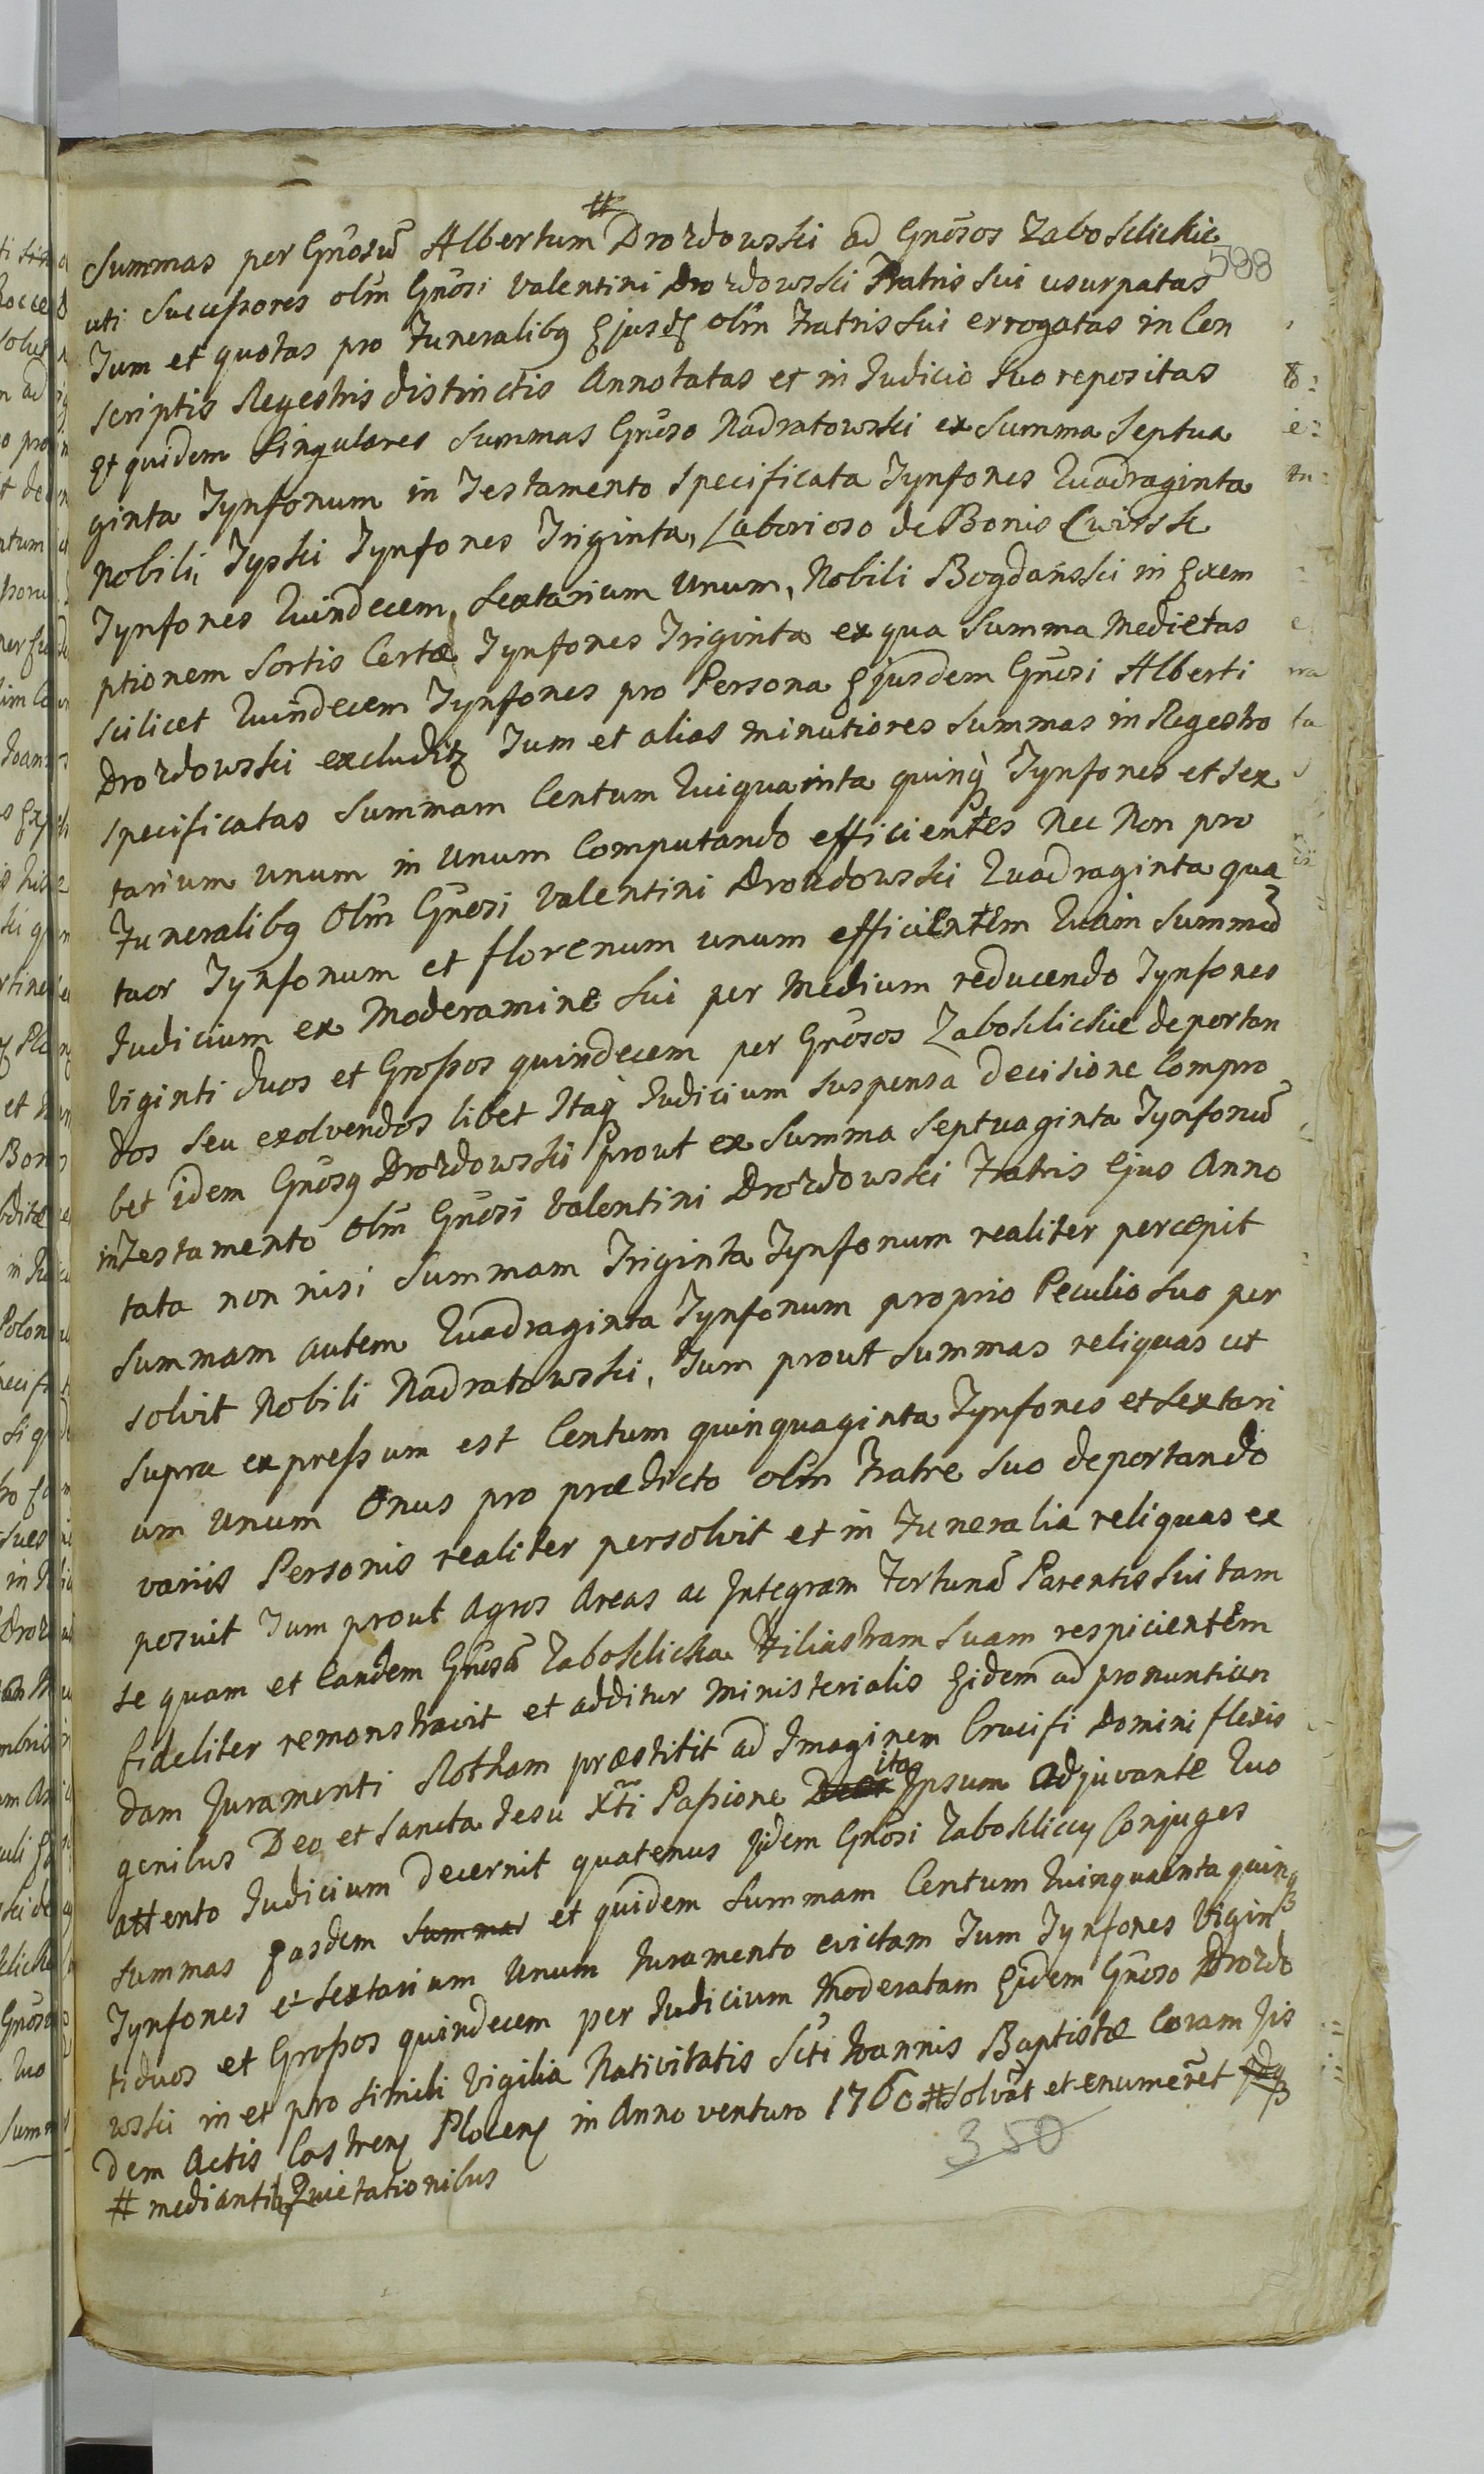 #
Summas per Gnosũ Albertum Drozdowski ad Gnosos Zaboklickie
588
uti Succeßores olim Gnosi Valentini Drozdowski Fratris sui usurpatas
Tum et quotas pro Funeralibq Ejusdę olim Fratris sui errogatas in Con
scriptis Regestris distinctis Annotatas et in Judicio suo repositas
Et quidem Singulares Summas Gnoso Nadratowski ex Summa Septua
ginta Tynfonum in Testamento specificata Tynfones Quadraginta
Nobili, Typski Tynfones Triginta, Laborioso de Bonis Cwissk
Tynfones Quindecem, Sextarium Unum, Nobili Bogdański in Exem
ptionem Sortis Certæ Tynfones Triginta ex qua Summa Medietas
scilicet Quindecem Tynfones pro Persona Ejusdem Gnosi Alberti
Drozdowski excluditr Tum et alias minutiores Summas in Regestro
specificatas Summam Centum Quiquainta quinq Tynfones et Sex
tarium unum in Unum Computando efficientes Nec Non pro
Funeralibq Olim Gnosi Valentini Drozdowski Quadraginta qua
tuor Tynfonum et florenum unum efficientem Quam Summã
Judicium ex Moderamine sui per Medium reducendo Tynfones
Viginti duos et Großos quindecem per Gnosos Zaboklickie deportan
dos seu exolvendos libet Itaq Judicium suspensa decisione Compro
bet idem Gnosq Drozdowski Prout ex Summa Septuaginta Tynfonũ
in Testamento Olim Gnosi Valentini Drozdowski Fratris Ejus Anno
tata non nisi Summam Triginta Tynfonum realiter percepit
Summam autem Quadraginta Tynfonum proprio Peculio suo per
solvit Nobili Nadratowski, Tum prout Summas reliquas ut
supra expreßum est Centum quinquaginta Tynfones et Sextari
um Unum Onus pro prædicto olim Fratre suo deportando
variis Personis realiter persolvit et in Funeralia reliquas ex
posuit Tum prout Agros Areas ac Integram Fortunã Parentis sui tam
se quam et Eandem Gnosã Zaboklicka Filiastram suam respicientem
fideliter remonstravit et additur Ministerialis Eidem ad pronuntian
dam Juramenti Rotham præstitit ad Imaginem Crucifi Domini flexis
genibus Deo et Sancta Jesu Xti Paßione ita Ipsum adjuvante Quo
attento Judicium decernit quatenus Iidem Gnosi Zabokliccy Conjuges
Summas Easdem Summas et quidem Summam Centum Quinquainta quinq
Tynfones et Sextarium Unum Juramento evictam Tum Tynfones Vigin
ti duos et Großos quindecem per Judicium Moderatam Eidem Gnoso Drozdo
wski in et pro simili Vigilia Nativitatis Scti Joannis Baptistæ Coram Iis
dem Actis Castren Plocen in Anno venturo 1760 # solvãt et enumeret
# mediantibq Quietationibus
350